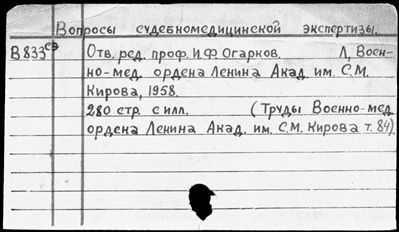 Вопросы судебномедицинской экспертизы.
В833сэ Отв. ред. проф. И.Ф Огарков. Л, Воен-
но-мед. ордена Ленина Акад им. С.М.
Кирова, 1958.
280 стр. с илл. (Труды Военно-мед
ордена Ленина Акад. им. С.М. Кирова т. 84)